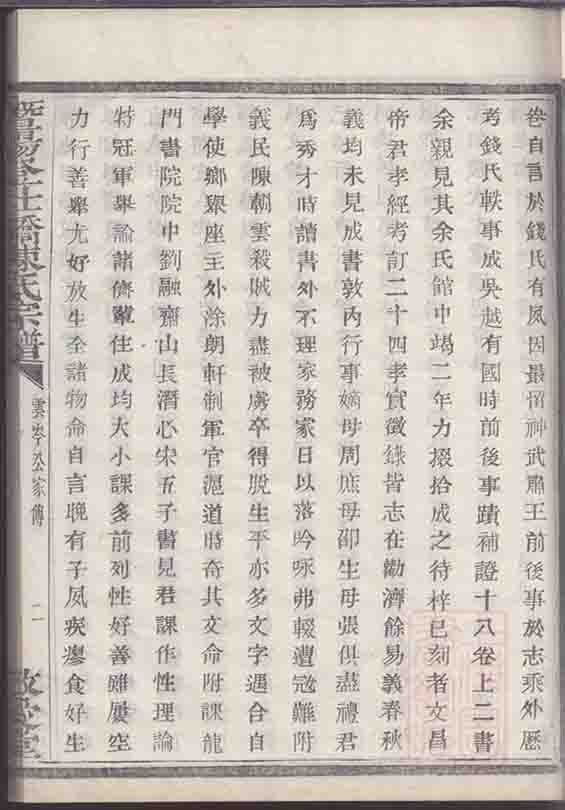 卷自言於錢氏有夙因最留神武肅王前後事於志乘外歷
考錢氏軼事成吳越有國時前後事蹟補證十八卷上二書
余親見其余氏館中竭二年力掇拾成之待梓已刻者文昌
帝君孝經考訂二十四孝實徵錄皆志在勸濟餘易義春秋
義均未見成書敦內行事嫡母周庶母邵生母張俱盡禮君
爲秀才時讀書外不理家務家日以落吟咏弗輟遭寇難附
義民陳朝雲殺賊力盡被虜卒得脫生平亦多文字遇合自
學使鄉舉座主外涂朗軒制軍官滬道時奇其文命附課龍
門書院院中劉融齋山長潛心宋五子書見君課作性理論
特冠軍舉論諸儕輩住成均大小課多前列性好善雖屢空
力行善舉尤好放生全諸物命自言晚有子夙疾瘳食好生
暨陽 仕橋陳氏宗譜
雲岑公家傳
二